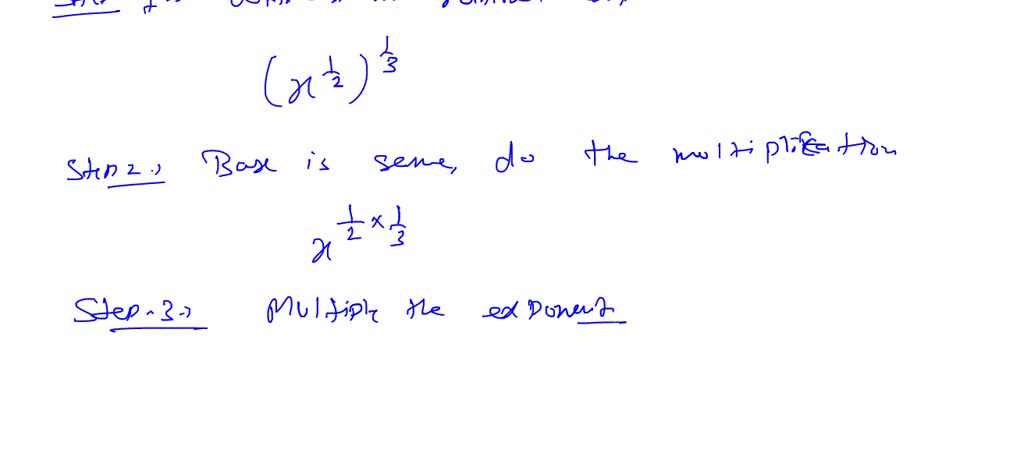 (x^{1/2})^{1/3}
Step 2:, Base is same, do the multiplication
x^{1/2 × 1/3}
Step-3:, Multiple the exponent